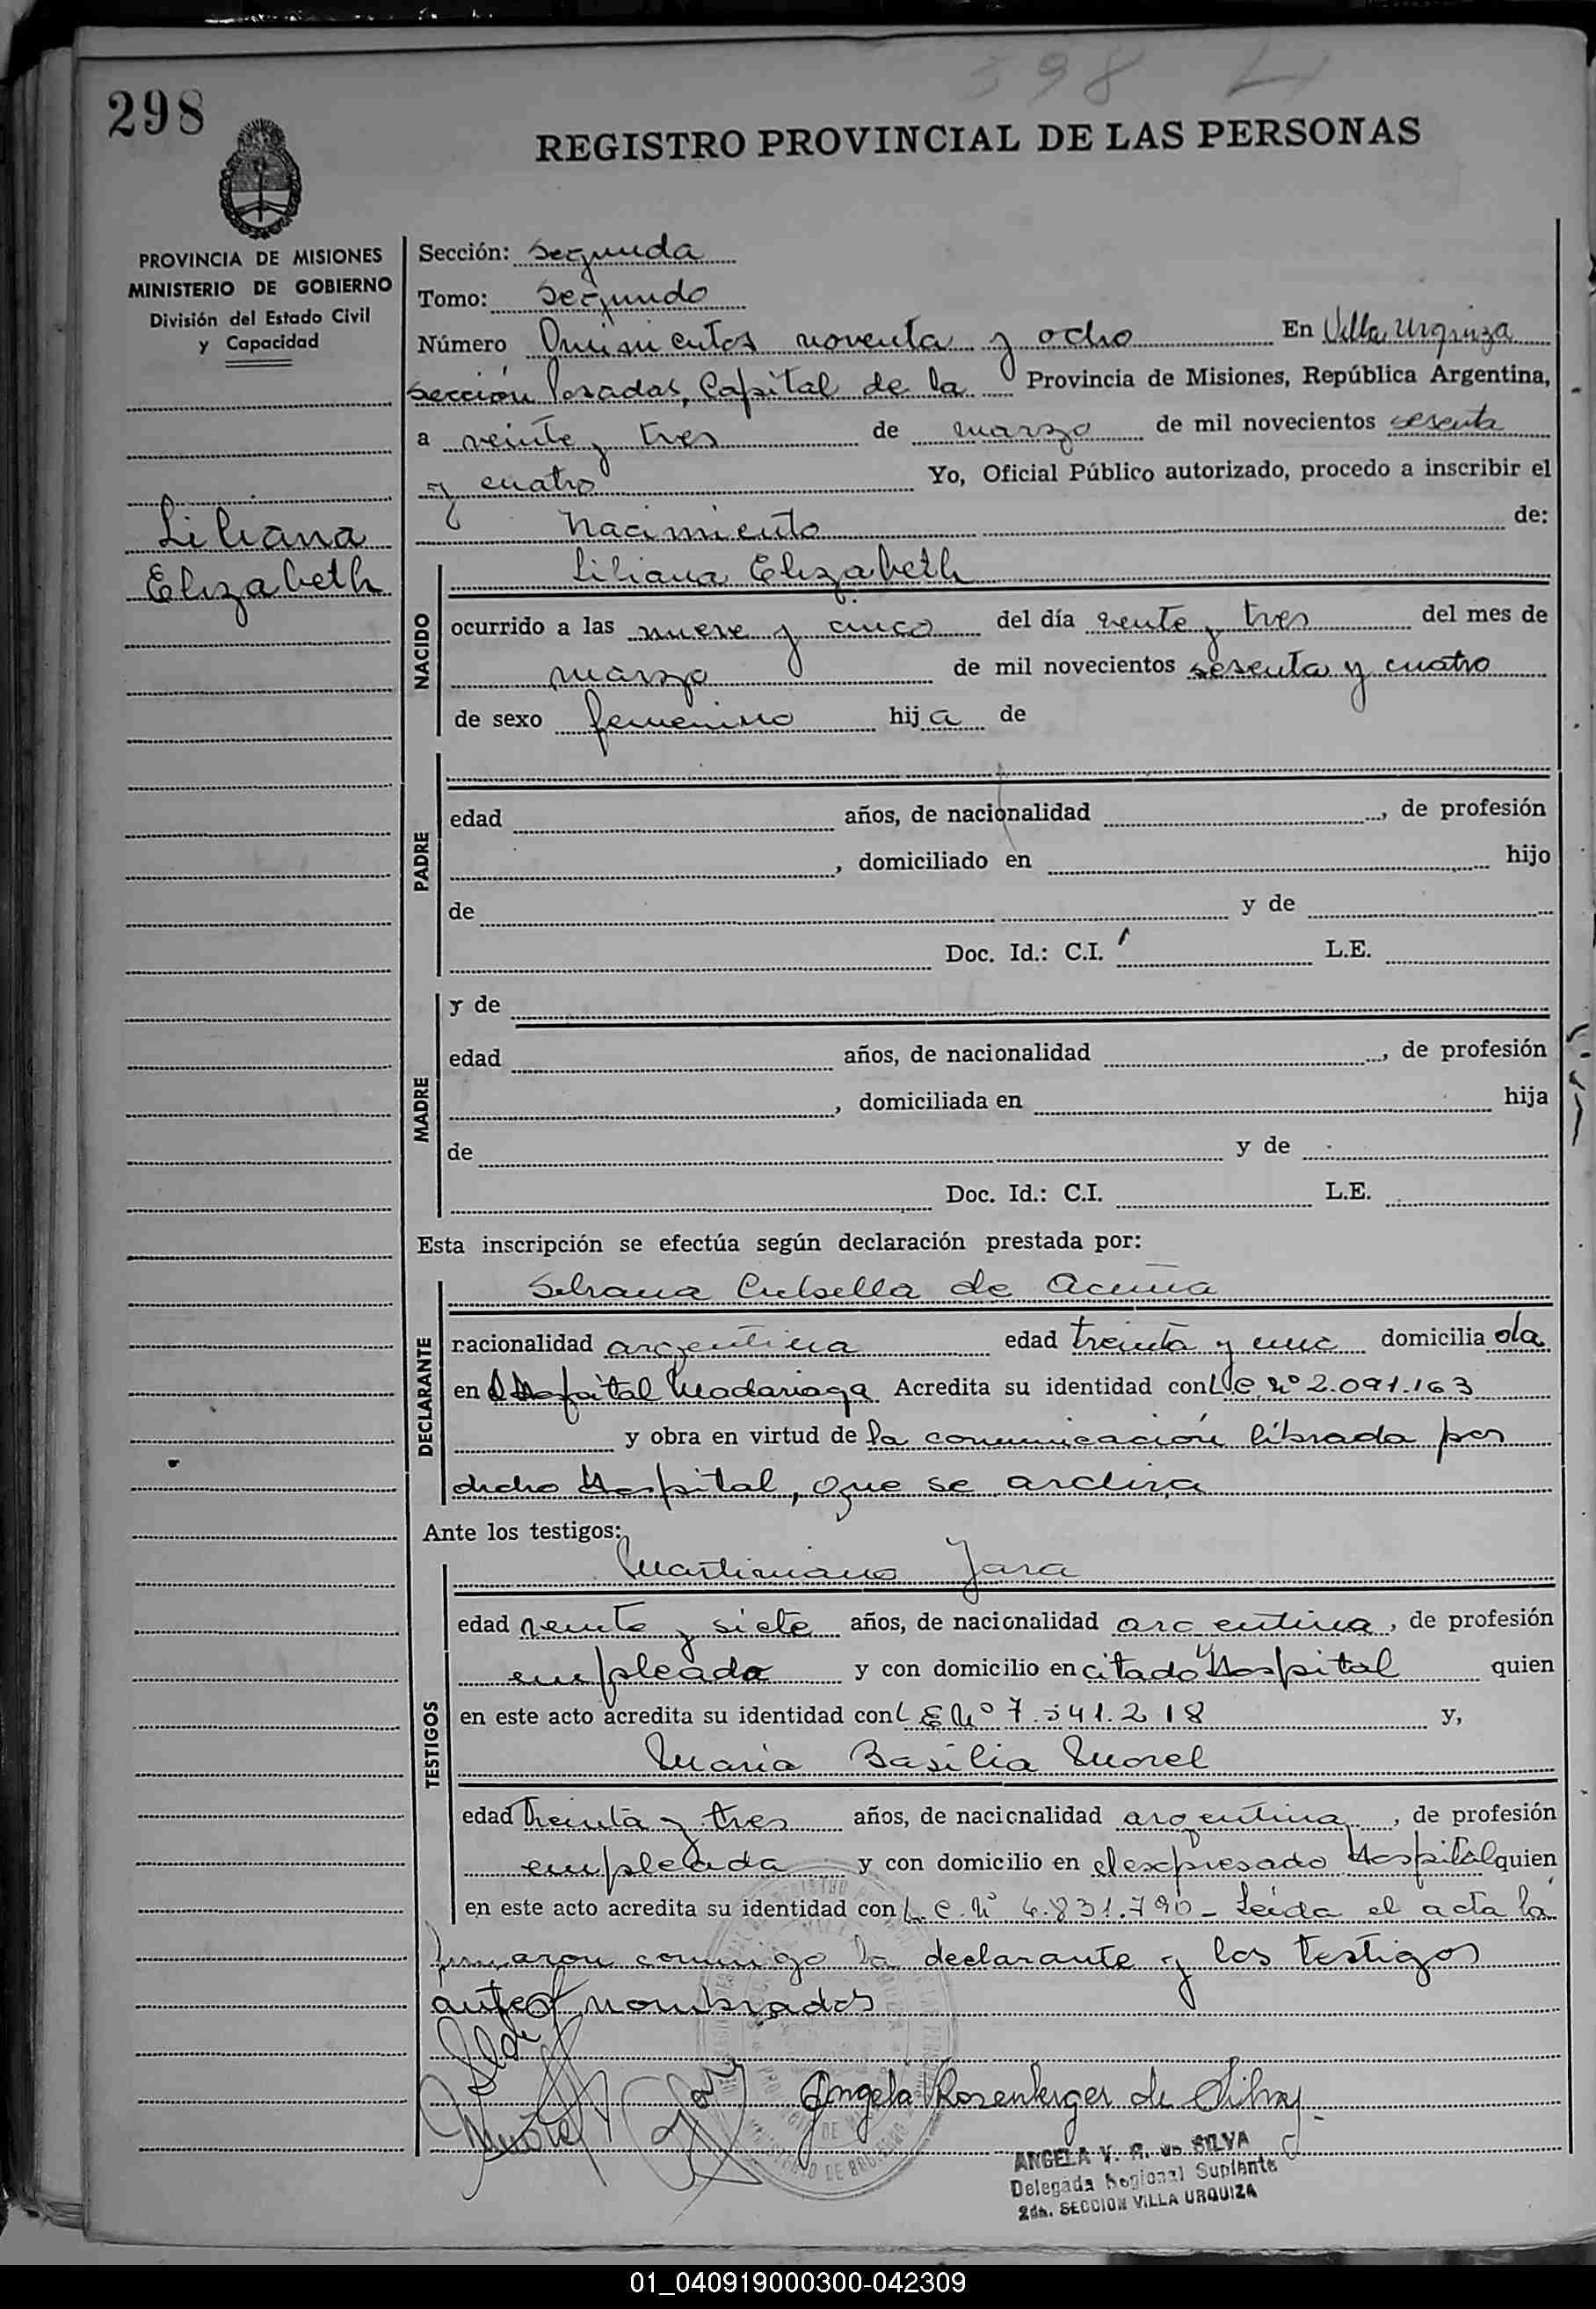 298
598 L
REGISTRO PROVINCIAL DE LAS PERSONAS
PROVINCIA DE MISIONES
MINISTERIO DE GOBIERNO
División del Estado Civil
y Capacidad
Liliana
Elizabeth
Sección: Segunda
Tomo: Segundo
Número Quinientos noventa y ocho En Villa Urquiza
Sección Posadas, Capital de la Provincia de Misiones, República Argentina,
a veinte y tres de marzo de mil novecientos sesenta
y cuatro Yo, Oficial Público autorizado, procedo a inscribir el
Nacimiento de:
NACIDO
Liliana Elizabeth
ocurrido a las nueve y cinco del día veinte y tres del mes de
marzo de mil novecientos sesenta y cuatro
de sexo femenino hija de
PADRE
edad años, de nacionalidad , de profesión
, domiciliado en hijo
de y de
Doc. Id.: C.I. L.E.
MADRE
y de
edad años, de nacionalidad , de profesión
, domiciliada en hija
de y de
Doc. Id.: C.I. L.E.
Esta inscripción se efectúa según declaración prestada por:
DECLARANTE
de Acuña
nacionalidad argentina edad treinta y uno domiciliada
en Hospital Madariaga Acredita su identidad con L C. Nº 2.091.163
y obra en virtud de la comunicación librada por
dicho Hospital, que se archiva
Ante los testigos:
TESTIGOS
Martiniano Jara
edad veinte y siete años, de nacionalidad argentina, de profesión
empleado y con domicilio en citado Hospital quien
en este acto acredita su identidad con L E Nº 7.541.218 y,
Maria Basilia Morel
edad treinta y tres años, de nacionalidad argentina, de profesión
empleada y con domicilio en el expresado Hospital quien
en este acto acredita su identidad con L. C. Nº 4.831.790 - Leida el acta la
firmaron conmigo la declarante y los testigos
antes nombrados
Angela V Rosenberger de Silva
ANGELA V. R. DE SILVA
Delegada Regional Suplente
2da. SECCION VILLA URQUIZA
01_040919000300-042309